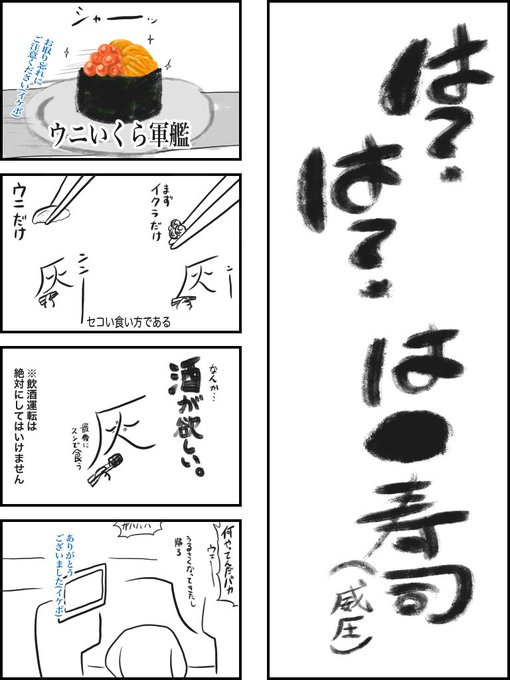 は?
は?
は●寿司
(威圧)
シャーッ
お取り忘れに
ご注意ください(イケボ)
ウニいくら軍艦
まず
イクラだけ
灰
ウニだけ
灰
セコい食い方である
なんか…
酒が欲しい。
灰
最後に
スシで食う
※飲酒運転は
絶対にしてはいけません
何やってんだバカ
ウェー
うるさくなってきたし
帰る
ありがとう
ございました(イケボ)